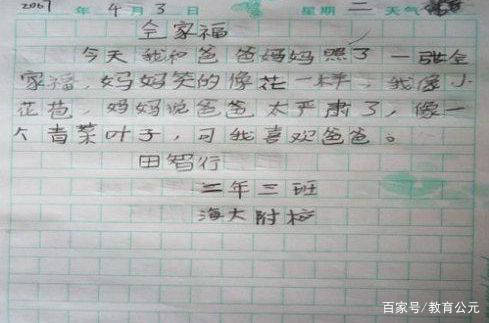 2007 年 4 月 3 日 星期 二 天气
全家福
今天我和爸爸妈妈照了一张全
家福，妈妈笑的像花一样，我像小
花苞，妈妈说爸爸太严肃了，像一
个青菜叶子，可我喜欢爸爸。
田智行
二年三班
海大附校
百家号/教育公元